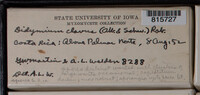 STATE UNIVERSITY OF IOWA
MYXOMYCETE COLLECTION
815727
Didymium clavus (Alb & Schw.) Rab.
Costa Rica: Above Palmar Norte, 8 Aug. 52
G.W. Martin & A.L. Welden 8288
Det. A.L.W.